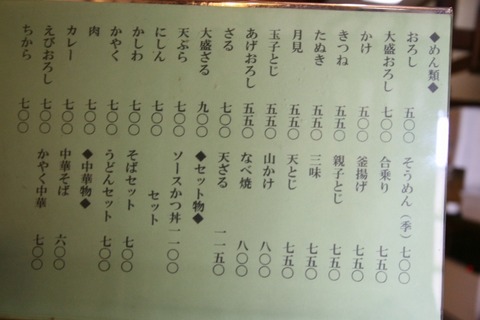 ◆めん類◆
おろし 五〇〇
大盛おろし 七〇〇
かけ 五〇〇
きつね 五五〇
たぬき 五五〇
月見 五五〇
玉子とじ 五五〇
あげおろし 五五〇
ざる 七〇〇
大盛ざる 九〇〇
天ぷら 七〇〇
にしん 七〇〇
かしわ 七〇〇
かやく 七〇〇
肉 七〇〇
カレー 七〇〇
えびおろし 七〇〇
ちから 七〇〇
そうめん（季）七〇〇
台乗り 七五〇
釜揚げ 七五〇
親子とじ 七五〇
三味 七五〇
天とじ 七五〇
山かけ 八〇〇
なべ焼 八〇〇
天ざる 一一五〇
◆セット物◆
ソースかつ丼 一一〇〇
セット
そばセット 七〇〇
うどんセット 七〇〇
◆中華物◆
中華そば 六〇〇
かやく中華 七〇〇